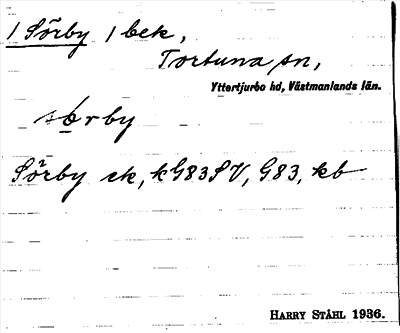 1 Sörby 1 bek,
Tortuna sn,
Yttertjurbo hd, Västmanlands län.
sørby
Sörby ek, kG83SV, G83, kb
HARRY STÅHL 1936.